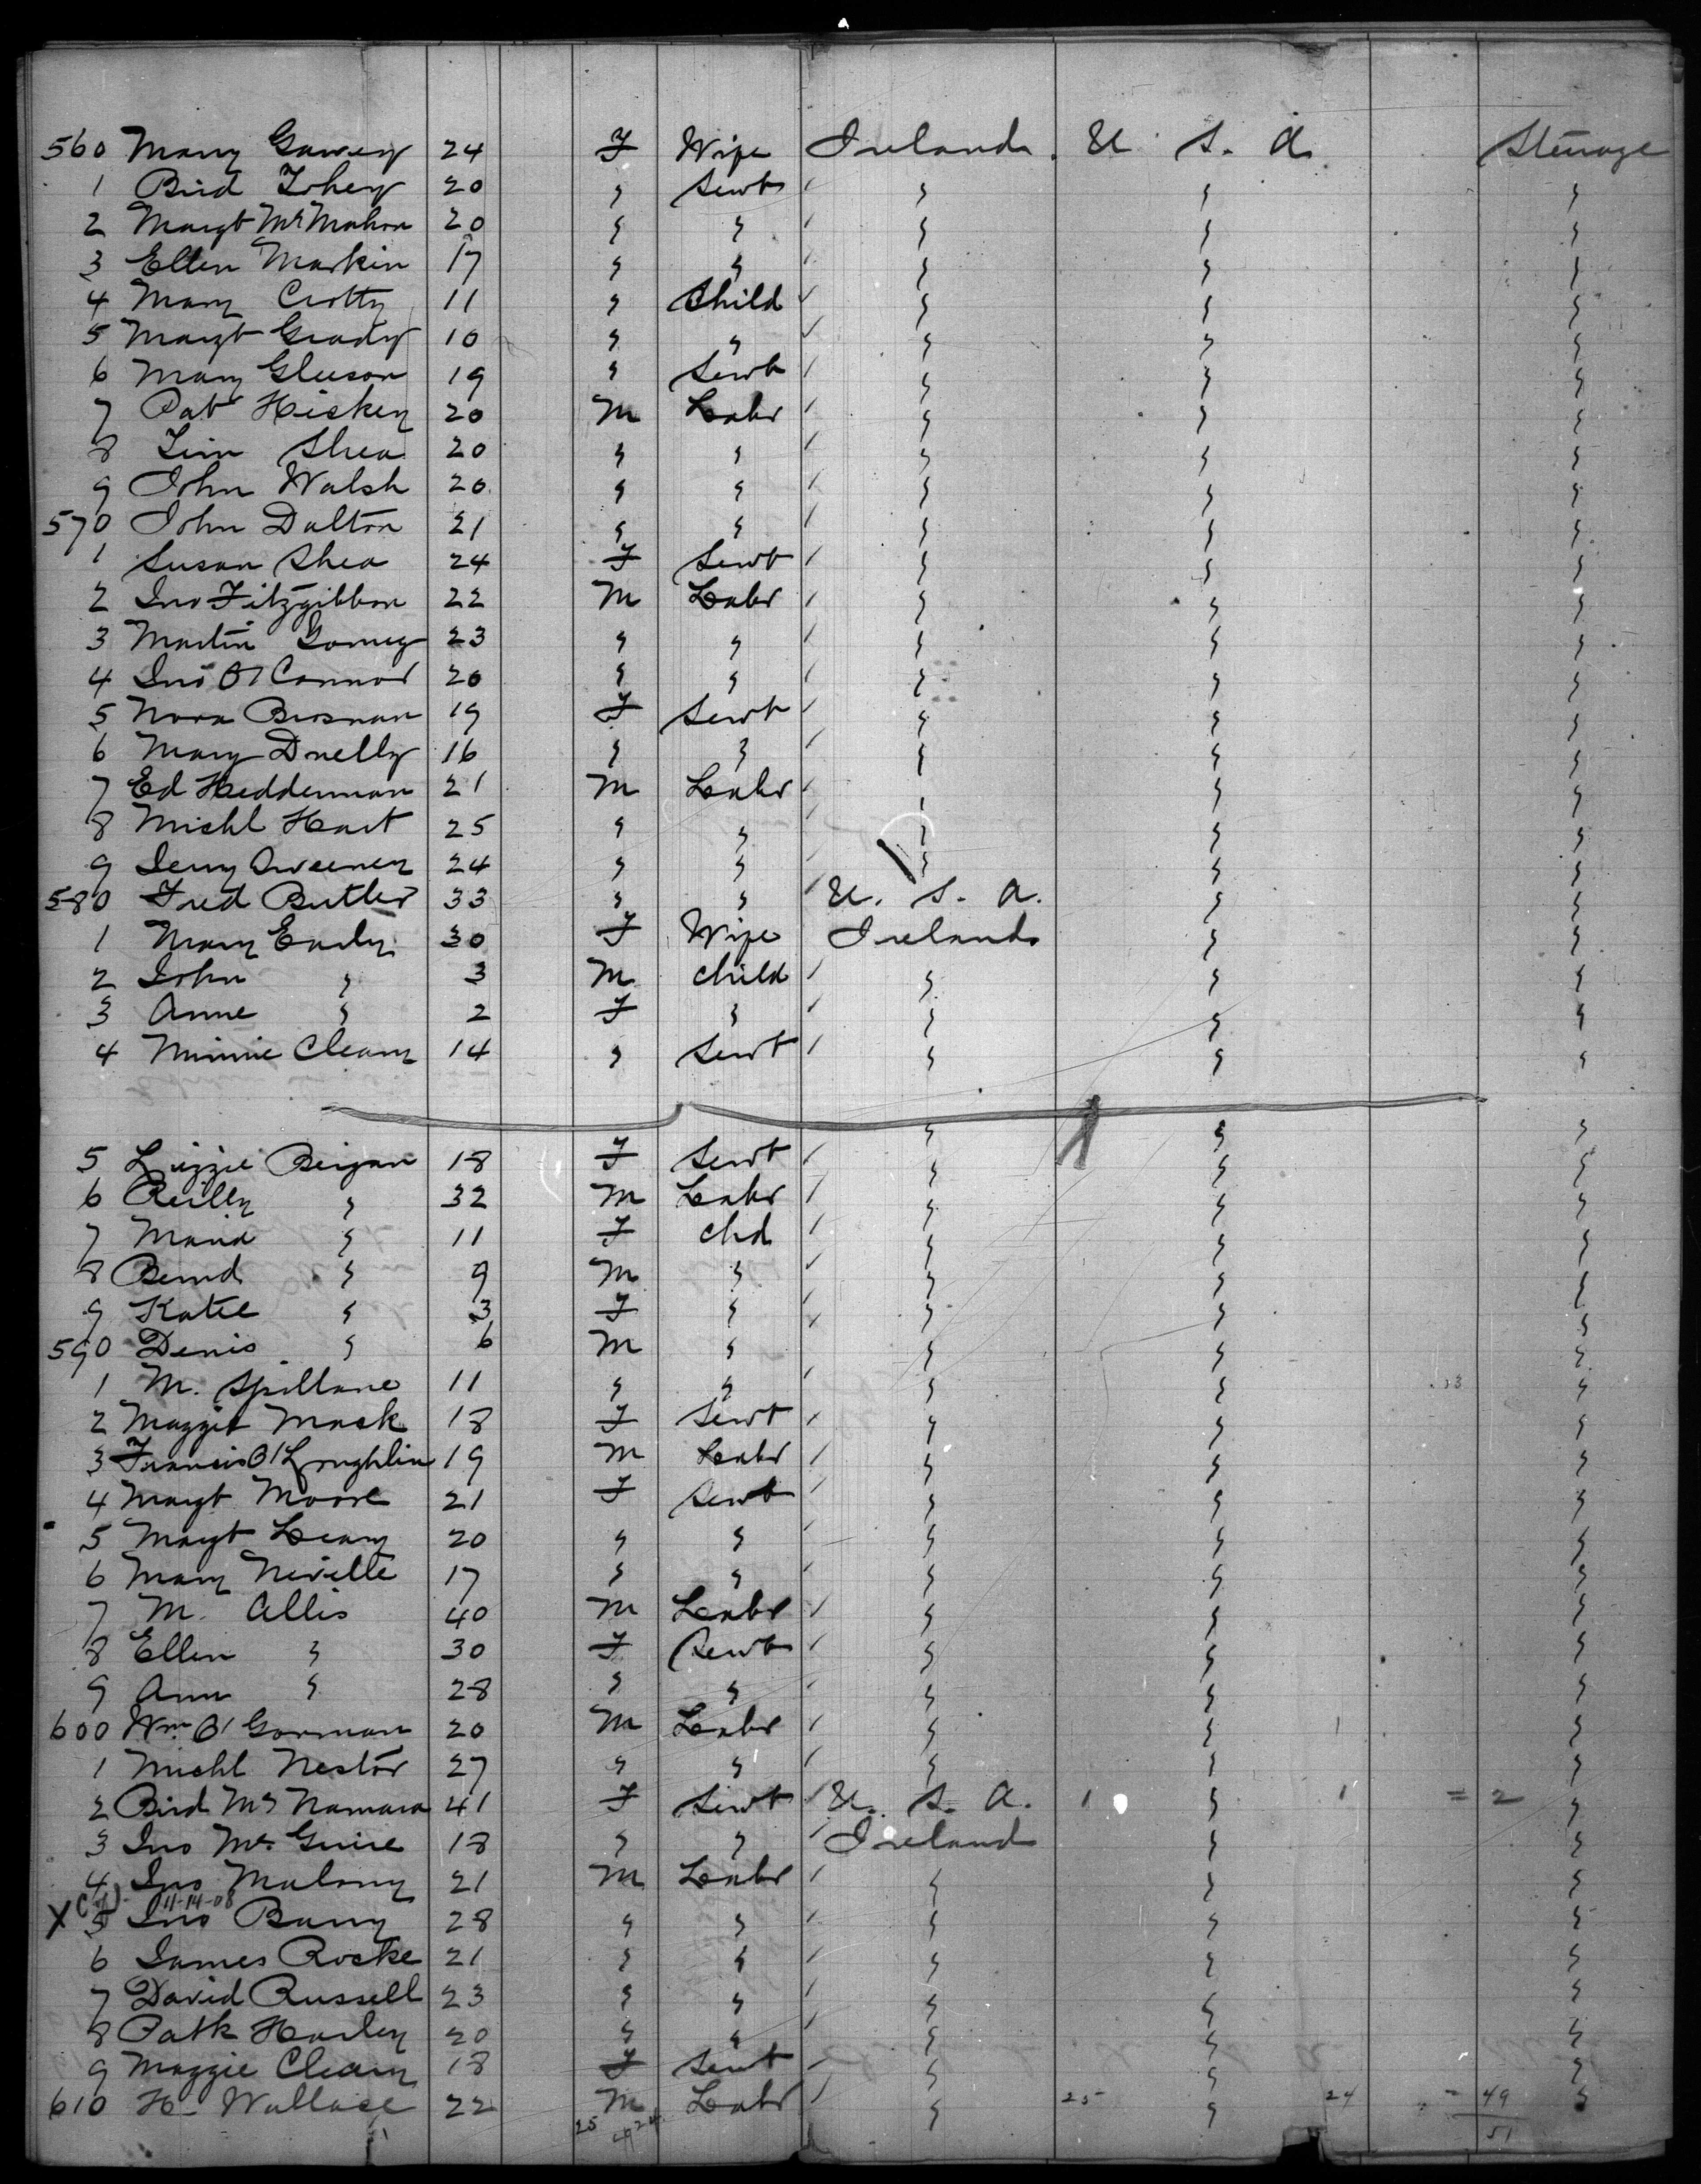 560 Mary Garvey 24 F Wife Ireland. U. S. A. Steerage
1 Bird Fohey 20 " Servt " " "
2 Margt McMahon 20 " " " " "
3 Ellen Markin 17 " " " " "
4 Mary Crotty 11 " Child " " "
5 Margt Grady 10 " " " " "
6 Mary Gleeson 19 " Servt " " "
7 Pat Hickey 20 M Labr " " "
8 Tim Shea 20 " " " " "
9 John Walsh 20 " " " " "
570 John Dalton 21 " " " " "
1 Susan Shea 24 F Servt " " "
2 Jno Fitzgibbon 22 M Labr " " "
3 Martin 23 " " " " "
4 Jno O'Connor 20 " " " " "
5 Nora Brosnan 19 F Servt " " "
6 Mary Dnelly 16 " " " " "
7 Ed Hedderman 21 M Labr " " "
8 Michl Hart 25 " " " " "
9 Jerry Sweeney 24 " " " " "
580 Fred Butler 33 " " U. S. A. " "
1 Mary Early 30 F Wife Ireland " "
2 John " 3 M child " " "
3 Anne " 2 F " " " "
4 Minnie Cleary 14 " Servt " " "
5 Lizzie Beigan 18 F Servt " " "
6 Reilly " 32 M Labr " " "
7 Maria " 11 F chd " " "
8 Bernd " 9 M " " " "
9 Katie " 3 F " " " "
590 Denis " 6 M " " " "
1 M. Spillane 11 " " " " "
2 Maggie Mack 18 F Servt " " "
3 Francis O'Loughlin 19 M Labr " " "
4 Margt Moore 21 F Servt " " "
5 Margt Leary 20 " " " " "
6 Mary Neville 17 " " " " "
7 M. Allis 40 M Labr " " "
8 Ellen " 30 F Servt " " "
9 Ann " 28 " " " " "
600 Wm O'Gorman 20 M Labr " " 1 "
1 Michl Nestor 27 " " " " "
2 Bird McNamara 41 F Servt U. S. A. 1 " 1 = 2 "
3 Jno McGuire 18 " " Ireland " "
4 Jno Malony 21 M Labr " " "
11-14-08
X 5 Jno Barry 28 " " " " "
6 James Rocke 21 " " " " "
7 David Russell 23 " " " " "
8 Patk Harley 20 " " " " "
9 Maggie Cleary 18 F Servt " " "
610 H. Wallace 22 M Labr " 25 " 24 = 49 "
25 49 24 51